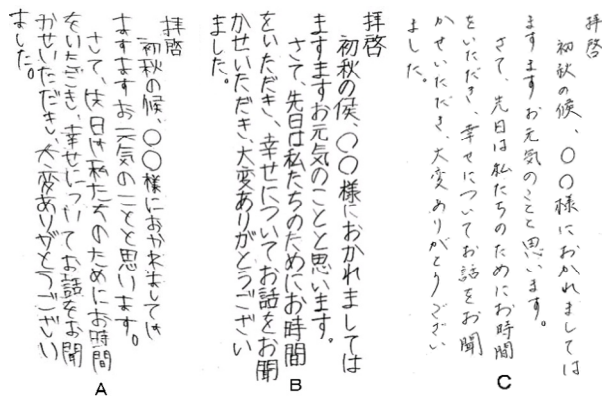 拝啓
初秋の候、〇〇様におかれましては
ますますお元気のことと思います。
さて、先日は私たちのためにお時間
をいただき、幸せについてお話をお聞
かせいただき、大変ありがとうござい
ました。
A
拝啓
初秋の候、〇〇様におかれましては
ますますお元気のことと思います。
さて、先日は私たちのためにお時間
をいただき、幸せについてお話をお聞
かせいただき、大変ありがとうござい
ました。
B
拝啓
初秋の候、〇〇様におかれましては
ますますお元気のことと思います。
さて、先日は私たちのためにお時間
をいただき、幸せについてお話をお聞
かせいただき、大変ありがとうござい
ました。
C